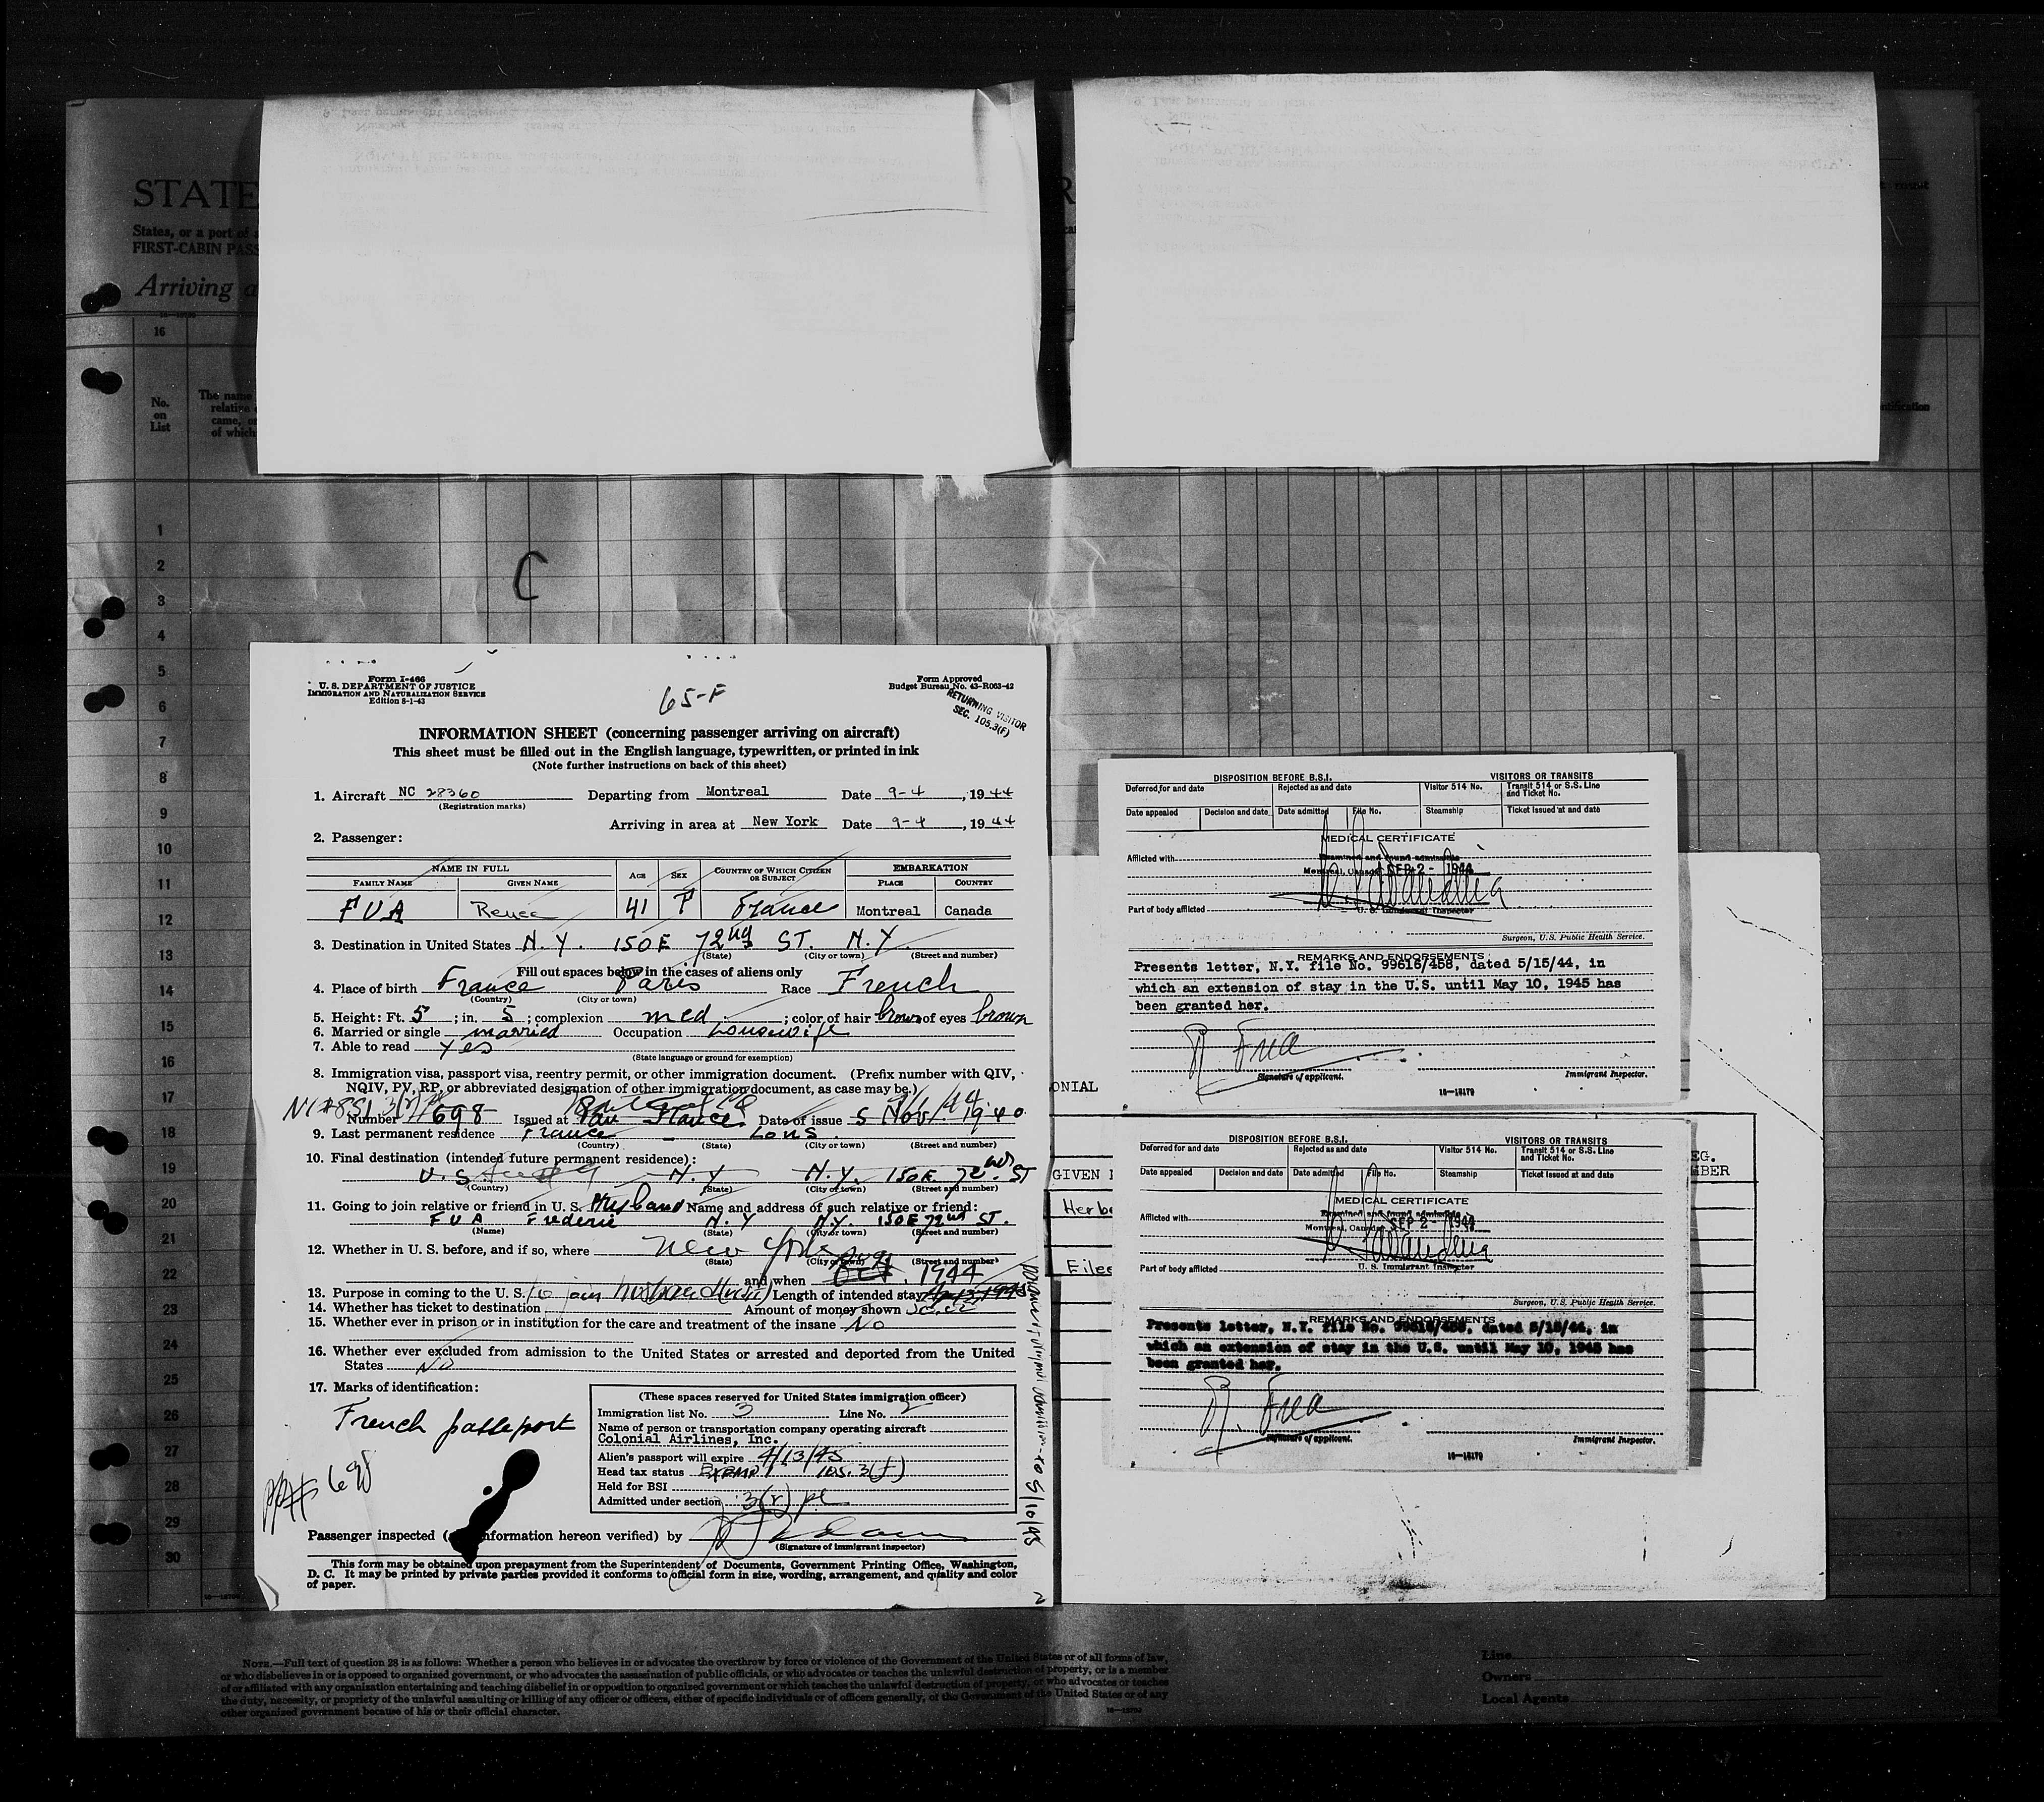 STATE
States, or a port of
FIRST-CABIN PASS
Arriving a
16
No.
on
List
The name
relative
came, or
of which
1
2
3
4
5
6
7
8
9
10
11
12
13
14
15
16
17
18
19
20
21
22
23
24
25
26
27
28
29
30
C
Form I-466
U. S. DEPARTMENT OF JUSTICE
IMMIGRATION AND NATURALIZATION SERVICE
Edition 8-1-43
65-F
Form Approved
Budget Bureau No. 43-R063-42
RETURNING VISITOR
SEC. 105.3(F)
INFORMATION SHEET (concerning passenger arriving on aircraft)
This sheet must be filled out in the English language, typewritten, or printed in ink
(Note further instructions on back of this sheet)
1. Aircraft NC 28360 Departing from Montreal Date 9-4, 1944
(Registration marks)
Arriving in area at New York Date 9-4, 1944
2. Passenger:
NAME IN FULL AGE SEX COUNTRY OF WHICH CITIZEN OR SUBJECT EMBARKATION
FAMILY NAME GIVEN NAME PLACE COUNTRY
FUA Renee 41 F France Montreal Canada
3. Destination in United States N.Y. 150 E 72nd ST. N.Y.
(State) (City or town) (Street and number)
Fill out spaces below in the cases of aliens only
4. Place of birth France Paris Race French
(Country) (City or town)
5. Height: Ft. 5; in. 5; complexion med; color of hair brown of eyes brown
6. Married or single married Occupation housewife
7. Able to read yes
(State language or ground for exemption)
8. Immigration visa, passport visa, reentry permit, or other immigration document. (Prefix number with QIV,
NQIV, PV, RP, or abbreviated designation of other immigration document, as case may be.)
Number 698 Issued at Pau France Date of issue 5 Nov. 1940
9. Last permanent residence France Lons
(Country) (State) (City or town) (Street and number)
10. Final destination (intended future permanent residence):
U.S. N.Y N.Y. 150 E. 72nd ST
(Country) (State) (City or town) (Street and number)
11. Going to join relative or friend in U. S. Husband Name and address of such relative or friend:
FUA Frederic N.Y N.Y. 150 E 72nd ST.
(Name) (State) (City or town) (Street and number)
12. Whether in U. S. before, and if so, where New York
(State) (City or town) (Street and number)
and when 1944
13. Purpose in coming to the U. S. to join husband Length of intended stay
14. Whether has ticket to destination Amount of money shown
15. Whether ever in prison or in institution for the care and treatment of the insane No
16. Whether ever excluded from admission to the United States or arrested and deported from the United
States No
17. Marks of identification:
French passeport
PP# 698
(These spaces reserved for United States immigration officer)
Immigration list No. 3 Line No. 2
Name of person or transportation company operating aircraft
Colonial Airlines, Inc.
Alien's passport will expire 4/13/45
Head tax status Exempt 105.3(f)
Held for BSI
Admitted under section 3(r) pl
Passenger inspected ( information hereon verified) by
(Signature of immigrant inspector)
This form may be obtained upon prepayment from the Superintendent of Documents, Government Printing Office, Washington,
D. C. It may be printed by private parties provided it conforms to official form in size, wording, arrangement, and quality and color
of paper.
to 5/10/45
DISPOSITION BEFORE B.S.I. VISITORS OR TRANSITS
Deferred for and date Rejected as and date Visitor 514 No. Transit 514 or S.S. Line and Ticket No.
Date appealed Decision and date Date admitted File No. Steamship Ticket issued at and date
MEDICAL CERTIFICATE
Examined and found admissible
Afflicted with
Montreal, Canada SEP 2 - 1944
Part of body afflicted U. S. Immigrant Inspector
Surgeon, U.S. Public Health Service.
REMARKS AND ENDORSEMENTS
Presents letter, N.Y. file No. 99616/458, dated 5/15/44, in
which an extension of stay in the U.S. until May 10, 1945 has
been granted her.
R. Fua
Signature of applicant. Immigrant Inspector.
16-15179
ONIAL
GIVEN
Herbe
Eilee
EG.
MBER
DISPOSITION BEFORE B.S.I. VISITORS OR TRANSITS
Deferred for and date Rejected as and date Visitor 514 No. Transit 514 or S.S. Line and Ticket No.
Date appealed Decision and date Date admitted File No. Steamship Ticket issued at and date
MEDICAL CERTIFICATE
Examined and found admissible
Afflicted with
Montreal, Canada SEP 2 - 1944
Part of body afflicted U. S. Immigrant Inspector
Surgeon, U.S. Public Health Service.
REMARKS AND ENDORSEMENTS
Presents letter, N.Y. file No. 99616/458, dated 5/15/44, in
which an extension of stay in the U.S. until May 10, 1945 has
been granted her.
R. Fua
Signature of applicant. Immigrant Inspector.
16-15179
NOTE.—Full text of question 28 is as follows: Whether a person who believes in or advocates the overthrow by force or violence of the Government of the United States or of all forms of law,
or who disbelieves in or is opposed to organized government, or who advocates the assassination of public officials, or who advocates or teaches the unlawful destruction of property, or is a member
of or affiliated with any organization entertaining and teaching disbelief in or opposition to organized government or which teaches the unlawful destruction of property, or who advocates or teaches
the duty, necessity, or propriety of the unlawful assaulting or killing of any officer or officers, either of specific individuals or of officers generally, of the Government of the United States or of any
other organized government because of his or their official character.
Line
Owners
Local Agents